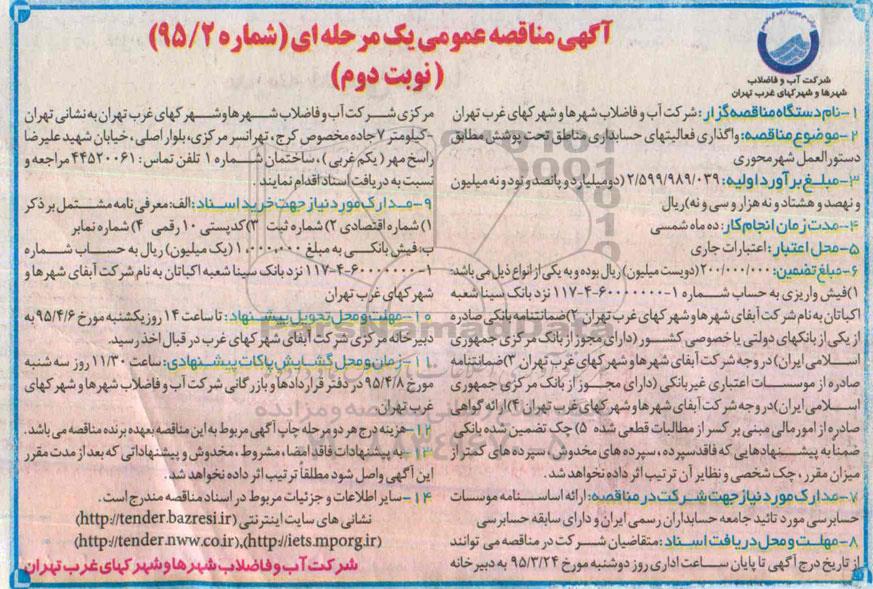 آگهی مناقصه عمومی یک مرحله ای (شماره ۹۵/۲)
(نوبت دوم)
شرکت آب و فاضلاب
شهرها و شهرکهای غرب تهران
۱-نام دستگاه مناقصه گزار: شرکت آب و فاضلاب شهرها و شهرکهای غرب تهران
۲-موضوع مناقصه: واگذاری فعالیتهای حسابداری مناطق تحت پوشش مطابق
دستورالعمل شهر محوری
۳-مبلغ برآورد اولیه: ۲/۵۹۹/۹۸۹/۰۳۹ (دو میلیارد و پانصد و نود و نه میلیون
و نهصد و هشتاد و نه هزار و سی و نه) ریال
۴-مدت زمان انجام کار: ده ماه شمسی
۵-محل اعتبار: اعتبارات جاری
۶-مبلغ تضمین: ۲۰۰/۰۰۰/۰۰۰ (دویست میلیون) ریال بوده و به یکی از انواع ذیل می باشد:
۱) فیش واریزی به حساب شماره ۱-۶۰۰۰۰۰۰۰-۴-۱۱۷ نزد بانک سینا شعبه
اکباتان به نام شرکت آبفای شهرها و شهرکهای غرب تهران ۲) ضمانتنامه بانکی صادره
از یکی از بانکهای دولتی یا خصوصی کشور (دارای مجوز از بانک مرکزی جمهوری
اسلامی ایران) در وجه شرکت آبفای شهرها و شهرکهای غرب تهران ۳) ضمانتنامه
صادره از موسسات اعتباری غیربانکی (دارای مجوز از بانک مرکزی جمهوری
اسلامی ایران) در وجه شرکت آبفای شهرها و شهرکهای غرب تهران ۴) ارائه گواهی
صادره از امور مالی مبنی بر کسر از مطالبات قطعی شده ۵) چک تضمین شده بانکی
ضمناً به پیشنهادهایی که فاقد سپرده، سپرده های مخدوش، سپرده های کمتر از
میزان مقرر، چک شخصی و نظایر آن ترتیب اثر داده نخواهد شد.
۷-مدارک مورد نیاز جهت شرکت در مناقصه: ارائه اساسنامه موسسات
حسابرسی مورد تائید جامعه حسابداران رسمی ایران و دارای سابقه حسابرسی
۸-مهلت و محل دریافت اسناد: متقاضیان شرکت در مناقصه می توانند
از تاریخ درج آگهی تا پایان ساعت اداری روز دوشنبه مورخ ۹۵/۳/۲۴ به دبیرخانه
مرکزی شرکت آب و فاضلاب شهرها و شهرکهای غرب تهران به نشانی تهران
-کیلومتر ۷ جاده مخصوص کرج، تهرانسر مرکزی، بلوار اصلی، خیابان شهید علیرضا
راسخ مهر (یکم غربی)، ساختمان شماره ۱ تلفن تماس: ۴۴۵۲۰۰۶۱ مراجعه و
نسبت به دریافت اسناد اقدام نمایند.
۹-مدارک مورد نیاز جهت خرید اسناد: الف: معرفی نامه مشتمل بر ذکر
۱) شماره اقتصادی ۲) شماره ثبت ۳) کدپستی ۱۰ رقمی ۴) شماره نمابر
ب: فیش بانکی به مبلغ ۱.۰۰۰.۰۰۰ (یک میلیون) ریال به حساب شماره
۱-۶۰۰۰۰۰۰۰-۴-۱۱۷ نزد بانک سینا شعبه اکباتان به نام شرکت آبفای شهرها و
شهرکهای غرب تهران
۱۰-مهلت و محل تحویل پیشنهاد: تا ساعت ۱۴ روز یکشنبه مورخ ۹۵/۴/۶ به
دبیرخانه مرکزی شرکت آبفای شهرکهای غرب در قبال اخذ رسید.
۱۱-زمان و محل گشایش پاکات پیشنهادی: ساعت ۱۱/۳۰ روز سه شنبه
مورخ ۹۵/۴/۸ در دفتر قراردادها و بازرگانی شرکت آب و فاضلاب شهرها و شهرکهای
غرب تهران
۱۲-هزینه درج هر دو مرحله چاپ آگهی مربوط به این مناقصه بعهده برنده مناقصه می باشد.
۱۳-به پیشنهادات فاقد امضا، مشروط، مخدوش و پیشنهاداتی که بعد از مدت مقرر
این آگهی واصل شود مطلقاً ترتیب اثر داده نخواهد شد.
۱۴-سایر اطلاعات و جزئیات مربوط در اسناد مناقصه مندرج است.
نشانی های سایت اینترنتی (http://tender.bazresi.ir)
(http://tender.nww.co.ir),(http://iets.mporg.ir)
شرکت آب و فاضلاب شهرها و شهرکهای غرب تهران
ParsNamadData